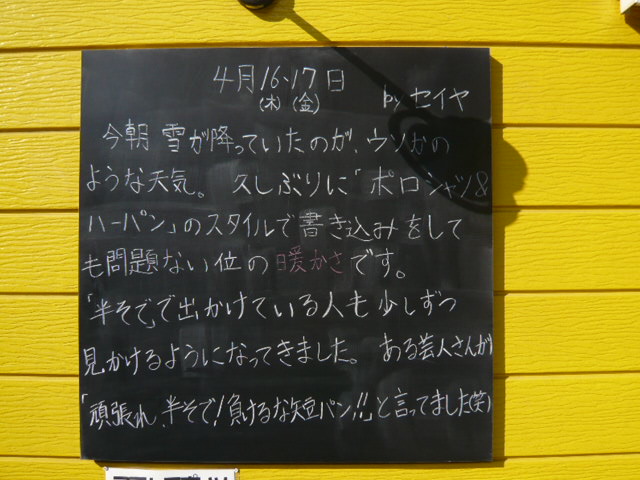 4月16-17日
(木) (金) by セイヤ
今朝 雪が降っていたのが、ウソかの
ような天気。 久しぶりに「ポロシャツ&
ハーパン」のスタイルで書き込みをして
も問題ない位の暖かさです。
「半そで」で出かけている人も少しずつ
見かけるようになってきました。 ある芸人さんが
「頑張れ、半そで!負けるな短パン!!」と言ってました(笑)